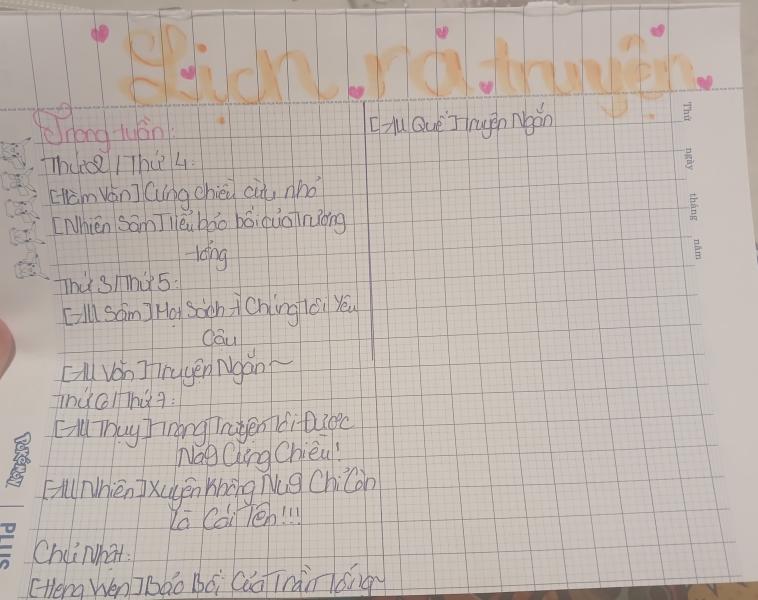 Lịch ra truyện
Trong tuần:
Thứ 2 / Thứ 4:
[Hàm Vân] Cưng chiều cừu nhỏ
[Nhiên Sâm] Tiểu bảo bối của Trương
tổng
Thứ 3 / Thứ 5:
[All Sâm] Mọt Sách À Chúng Tôi Yêu
Cậu
[All Vân] Truyện Ngắn~
Thứ 6 / Thứ 7:
[All Thuỵ] Trong Truyện Tôi Được
Na9 Cưng Chiều!
[All Nhiên] Xuyên Không Nu9 Chỉ Còn
Là Cái Tên!!!
Chủ Nhật:
[Heng Wen] Bảo Bối Của Trần Tổng~
[All Quế] Truyện Ngắn
Thứ
ngày
tháng
năm
PLUS